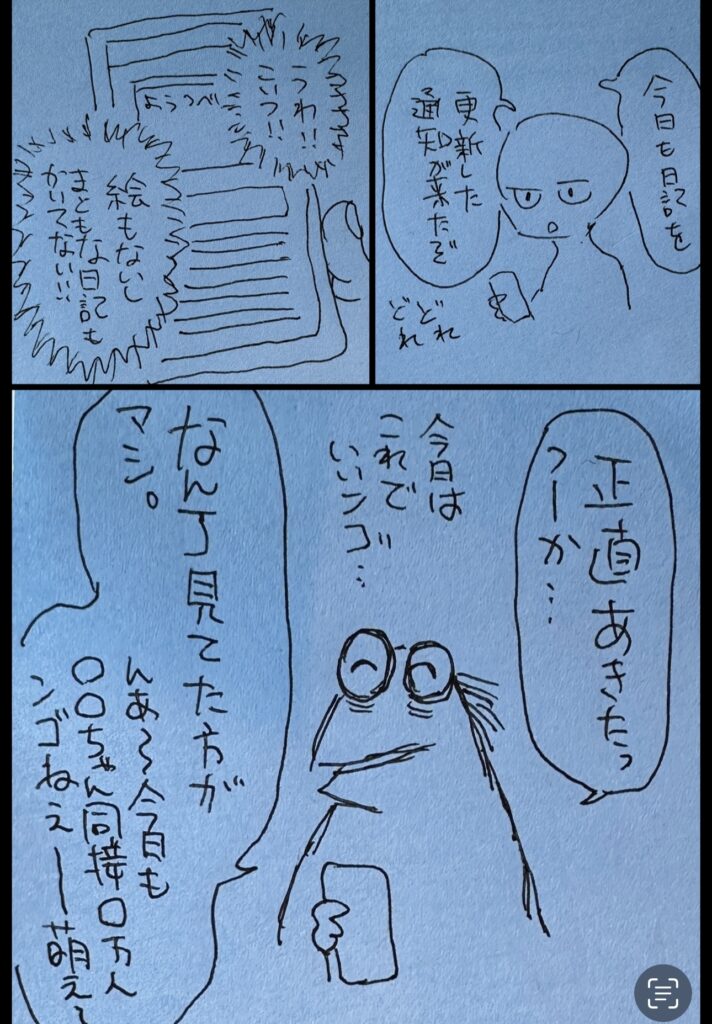 今日も日記を
更新した
通知が来たぞ
どれ
どれ
うわ!!
こいつ!!
ようつべ
絵もないし
まともな日記も
かいてない!!!
正直あきたっ
つーか…
今日は
これで
いいンゴ…
なんJ見てた方が
マシ。
んあ〜今日も
〇〇ちゃん同接〇万人
ンゴねぇー萌え〜